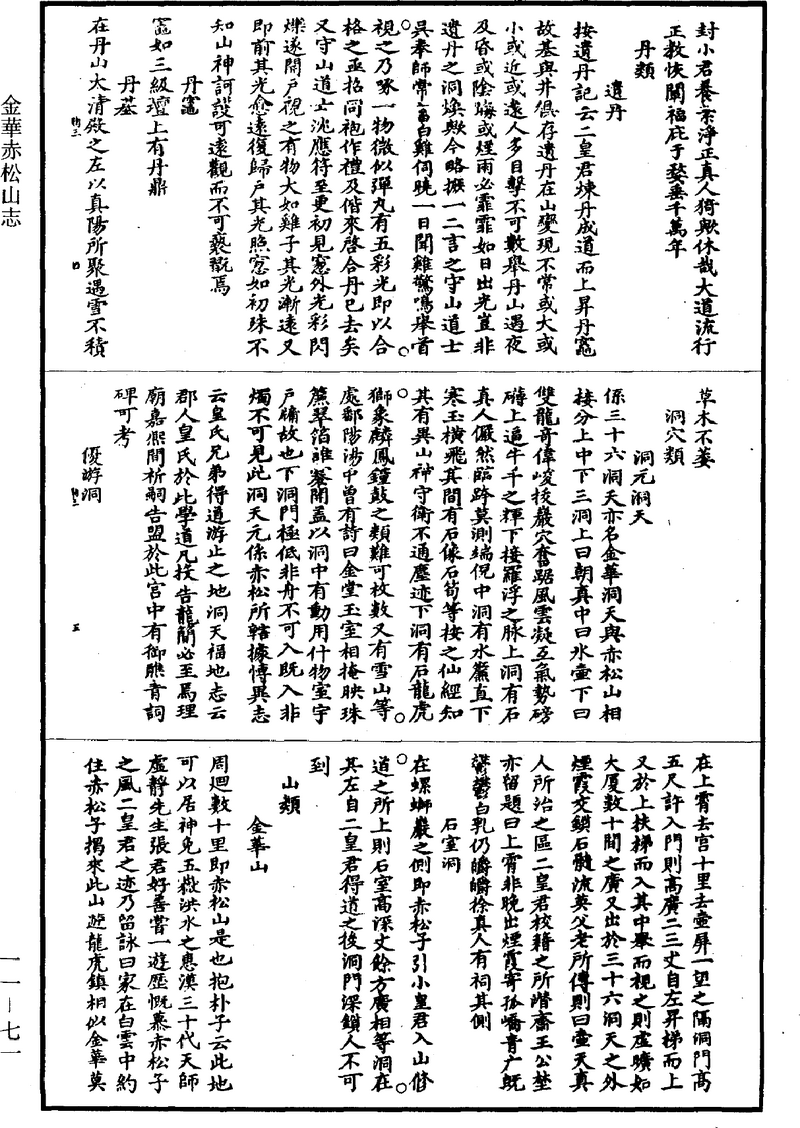 金華赤松山志
封小君養素淨正真人猗歟休哉大道流行
正教恢闡福庇于婺垂千萬年
丹類
遺丹
按遺丹記云二皇君煉丹成道而上昇丹竈
故基與井俱存遺丹在山變現不常或大或
小或近或遠人多目擊不可數舉丹山遇夜
及昏或陰晦或煙雨必霏霏如日出光豈非
遺丹之洞煥歟今略摭一二言之守山道士
吳奉師常畜白雞伺曉一日聞雞驚鳴舉首
視之乃啄一物微似彈丸有五彩光即以合
格之亟招同袍作禮及偕來啓合丹已去矣
又守山道士沈應符至更初見窓外光彩閃
爍遂開戶視之有物大如雞子其光漸遠又
即前其光愈遠復歸戶其光照窓如初殊不
知山神訶設可遠觀而不可褻翫焉
丹竈
竈如三級壇上有丹鼎
丹基
在丹山大清殿之左以真陽所聚遇雪不積
草木不萎
洞穴類
洞元洞天
係三十六洞天亦名金華洞天與赤松山相
接分上中下三洞上曰朝真中曰氷壺下曰
雙龍奇偉峻梭巖穴奮踞風雲凝互氣勢磅
礴上逼牛千之輝下接羅浮之脉上洞有石
真人儼然臨跨莫測端倪中洞有水簾直下
寒玉橫飛其間有石像石筍等按之仙經知
其有異山神守衛不通塵迹下洞有石龍虎
獅象麟鳳鐘鼓之類難可枚數又有雪山等
處鄱陽湯中曾有詩曰金堂玉室相掩映珠
簾翠箔誰褰開蓋以洞中有動用什物室宇
戶牖故也下洞門極低非舟不可入既入非
燭不可見此洞天元係赤松所轄據博異志
云皇氏兄弟得道游止之地洞天福地志云
郡人皇氏於此學道凡投告龍簡必至焉理
廟嘉熙間祈嗣告盟於此宮中有御醮青詞
碑可考
優游洞
在上霄去宮十里去壺屏一望之隔洞門高
五尺許入門則高廣二三丈自左昇梯而上
又於上扶梯而入其中舉而視之則虛曠如
大厦數十間之廣又出於三十六洞天之外
煙霞交鎖石髓流英父老所傳則曰壺天真
人所治之區二皇君校籍之所潛齋王公埜
亦留題曰上霄非晚出煙霞寄孤嶠青广既
鬱鬱白乳仍皭皭徐真人有祠其側
石室洞
在螺螄巖之側即赤松子引小皇君入山修
道之所上則石室高深丈餘方廣相等洞在
其左自二皇君得道之後洞門深鎖人不可
到
山類
金華山
周迴數十里即赤松山是也抱朴子云此地
可以居神免五嶽洪水之患漢三十代天師
虛靜先生張君好善嘗一遊歷慨慕赤松子
之風二皇君之迹乃留詠曰家在白雲中約
住赤松子揭來此山遊龍虎鎮相似金華莫
一一—七一